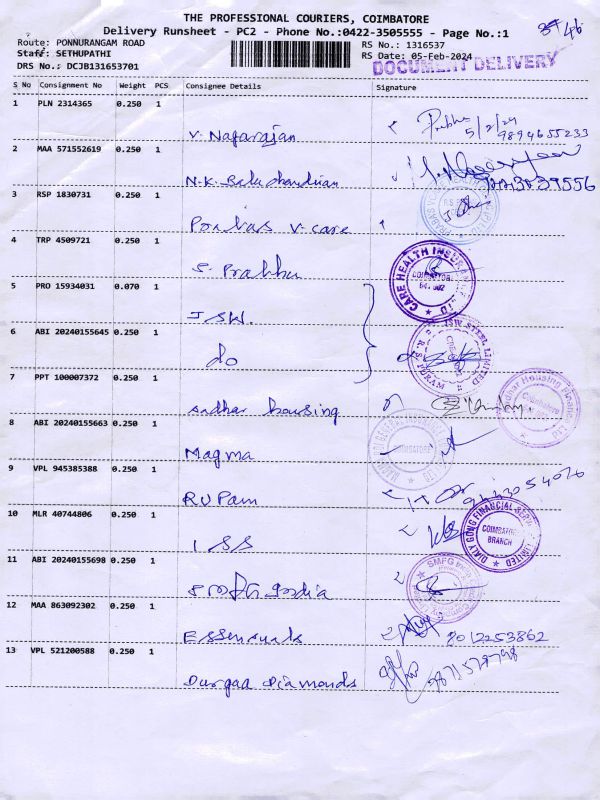 THE PROFESSIONAL COURIERS, COIMBATORE
Delivery Runsheet - PC2 - Phone No.:0422-3505555 - Page No.:1
Route: PONNURANGAM ROAD
Staff: SETHUPATHI
DRS No.: DCJB131653701
RS No.: 1316537
RS Date: 05-Feb-2024
DOCUMENT DELIVERY
S No Consignment No Weight PCS Consignee Details Signature
1 PLN 2314365 0.250 1 V. Nagarajan Prabhu 5/2/24 9894655233
2 MAA 571552619 0.250 1 N.K. Balachandiran
3 RSP 1830731 0.250 1 V-care
4 TRP 4509721 0.250 1 S. Prabhu CARE HEALTH INSURANCE LTD
5 PRO 15934031 0.070 1 JSW.
6 ABI 20240155645 0.250 1 do JSW STEEL LIMITED
7 PPT 100007372 0.250 1 Aadhar housing Aadhar Housing Finance Ltd Coimbatore
8 ABI 20240155663 0.250 1 Magma COIMBATORE
9 VPL 945385388 0.250 1 RUPam
10 MLR 40744806 0.250 1 ISS COIMBATORE BRANCH
11 ABI 20240155698 0.250 1 SMFG India SMFG
12 MAA 863092302 0.250 1 Essensuals 8012253862
13 VPL 521200588 0.250 1 Durgaa Diamonds